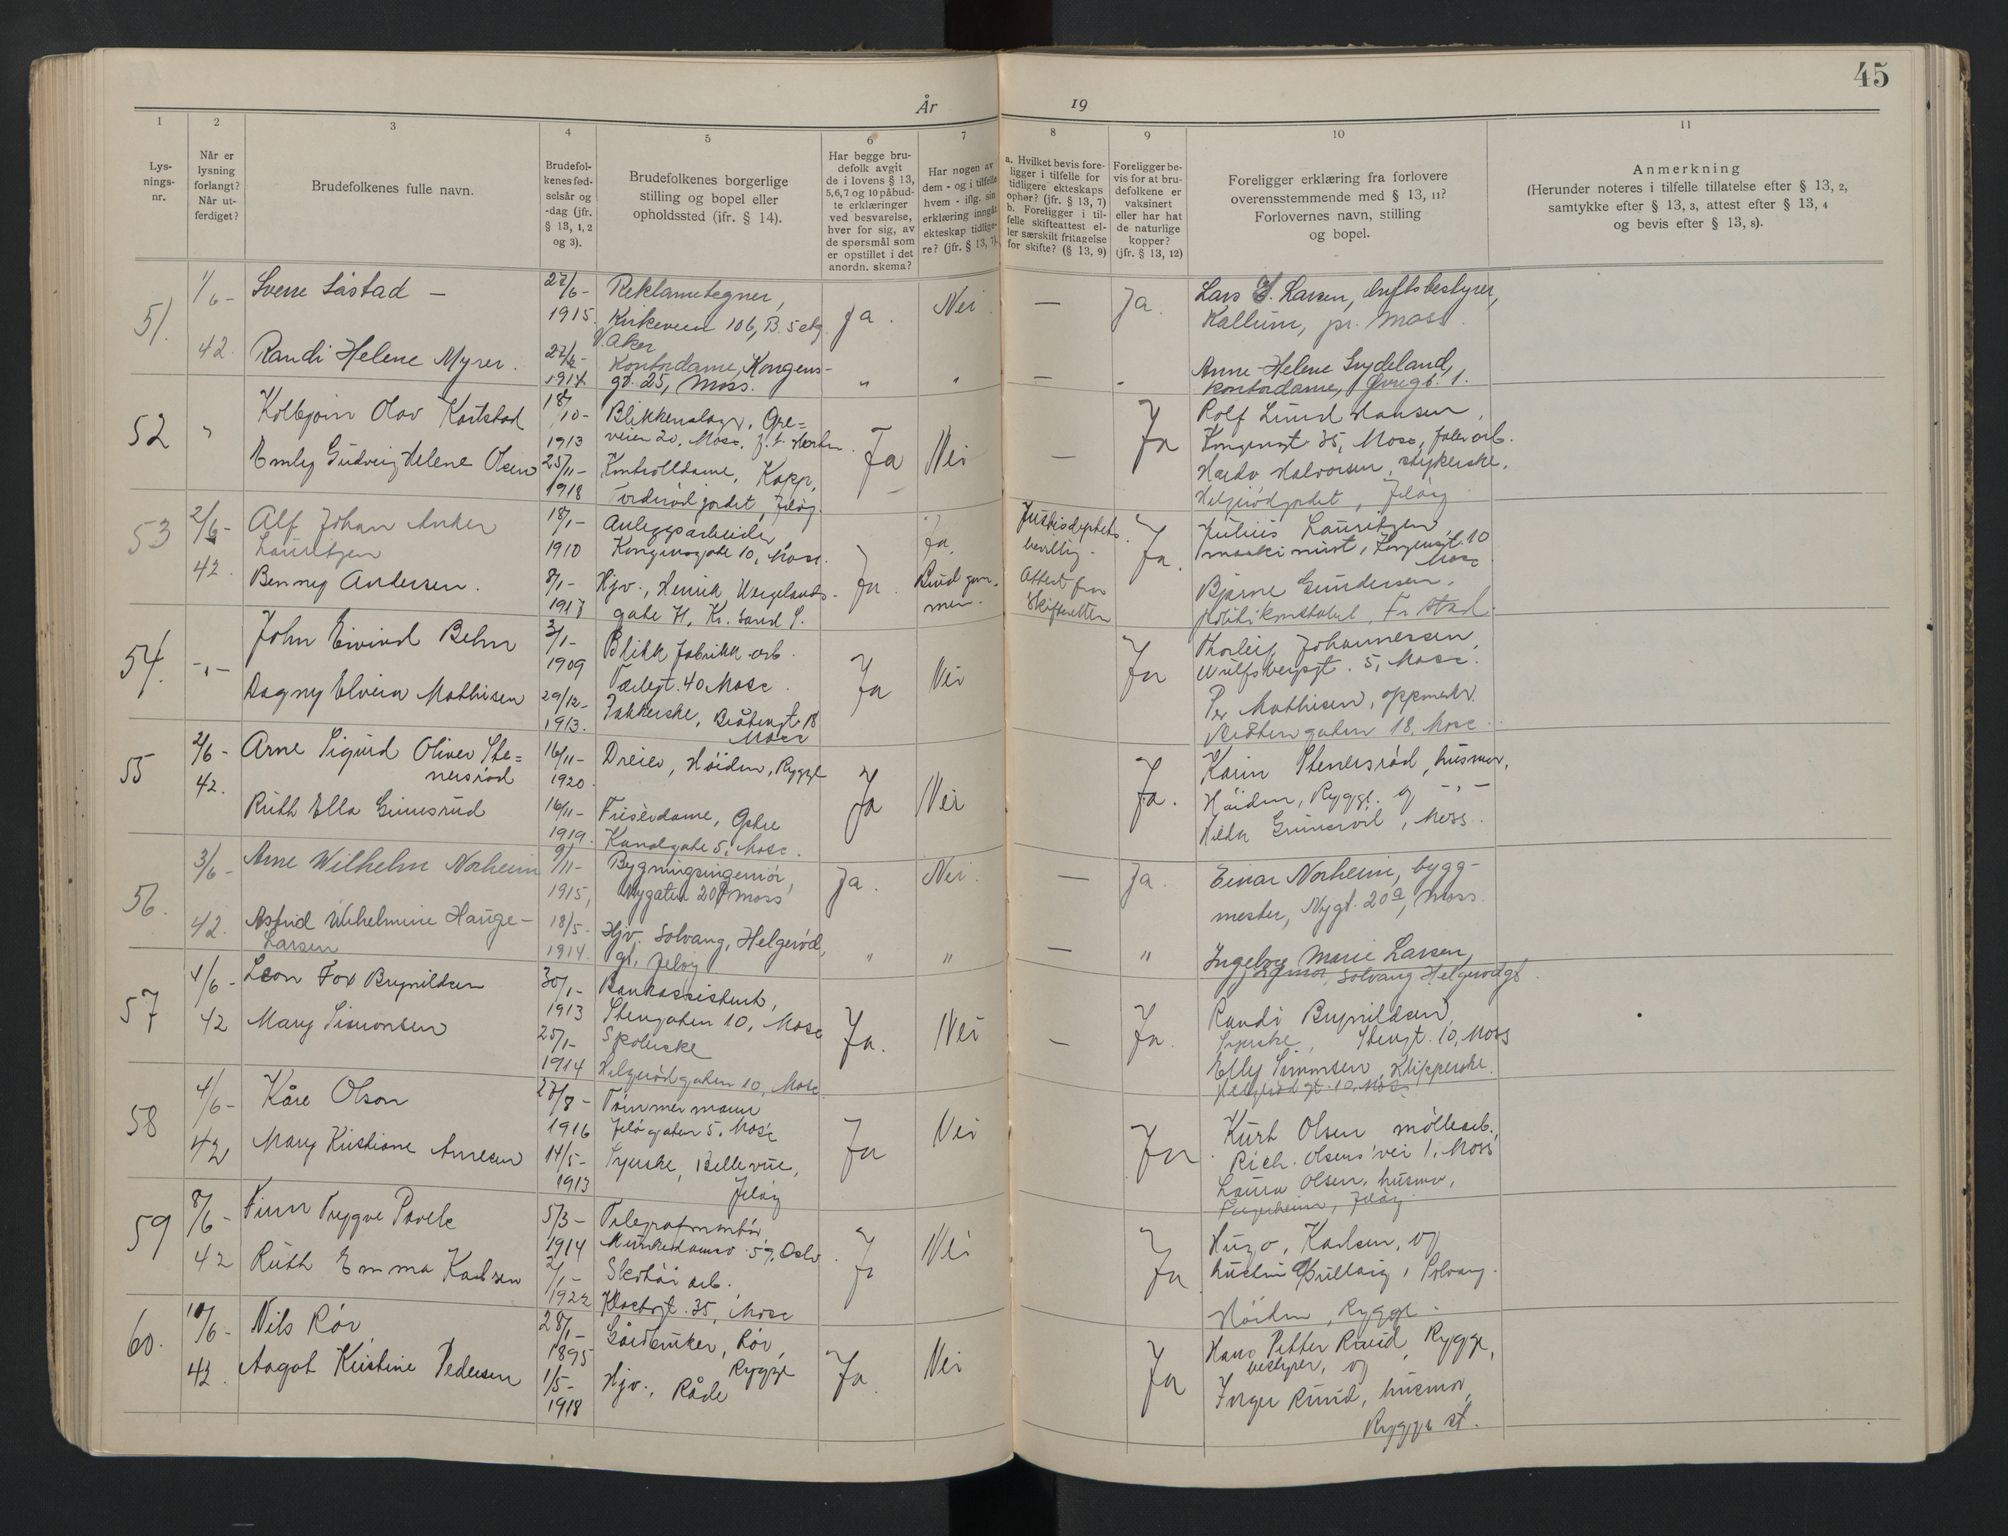 45
År 19
1 2 3 4 5 6 7 8 9 10 11
Lys-
nings-
nr.
Når er
lysning
forlangt?
Når ut-
ferdiget?
Brudefolkenes fulle navn.
Brudefol-
kenes fød-
selsår og
-dag (jfr.
§ 13, 1, 2
og 3).
Brudefolkenes borgerlige
stilling og bopel eller
opholdssted (jfr. § 14).
Har begge bru-
defolk avgit
de i lovens § 13,
5,6,7 og 10 påbud-
te erklæringer
ved besvarelse,
hver for sig, av
de spørsmål som
er opstillet i det
anordn. skema?
Har nogen av
dem - og i tilfelle
hvem - iflg. sin
erklæring inngåt
ekteskap tidlige-
re? (jfr. § 13, 7).
a. Hvilket bevis fore-
ligger i tilfelle for
tidligere ekteskaps
ophør? (jfr. § 13, 7)
b. Foreligger i til-
felle skifteattest el-
ler særskilt fritagelse
for skifte? (§ 13, 9)
Foreligger be-
vis for at bru-
defolkene er
vaksinert
eller har hat
de naturlige
kopper?
(jfr. § 13, 12)
Foreligger erklæring fra forlovere
overensstemmende med § 13, 11?
Forlovernes navn, stilling
og bopel.
Anmerkning
(Herunder noteres i tilfelle tillatelse efter § 13, 2,
samtykke efter § 13, 3, attest efter § 13, 4
og bevis efter § 13, 8).
51. 1/6 - 42.
Sverre Såstad —
27/6 - 1915.
Reklametegner,
Kirkeveien 106, B. 5 etg.
V. Aker
Ja. Nei. — Ja.
Lars S. Larsen, driftsbestyrer,
Kallum, pr. Moss.
Randi Helene Myrer.
1914
Kontordame, Kongens-
gt. 25, Moss.
" " — "
Anne-Helene Sydeland,
kontordame, Øvregt. 1.
52 "
Kolbjørn Olav Karlstad
18/10 - 1913
Blikkenslager, Ore-
veien 20, Moss, f. t. Horten
Emly Gudveig Helene Olsen
25/11 - 1918
Kontrolldame, Kapp,
Torderødjordet, Jeløy
Ja Nei — Ja
Rolf Lund Hansen,
Kongensgt 35, Moss,
Halvorsen, strykerske,
Helgerødjordet, Jeløy
53 2/6 - 42.
Alf Johan Anker
Lauritzen
18/1 - 1910
Anleggsarbeider,
Kongensgate 10, Moss.
Benny Andersen.
8/1 - 1917
Hjv., Henrik Wergelands-
gate H. Kr. sand S.
Ja. Ja,
Brudgom-
men.
Justisdeptets.
bevillg.
Attest fra
Skifteretten
Ja.
Julius Lauritzen,
maskinist, Kongensgt. 10
Moss
Bjarne Gundersen,
Politikonstabel, Fr.stad.
54. -"-
John Eivind Behn
3/1 - 1909
Blikk fabrikk arb.
Tærlegt. 40 Moss.
Dagny Elvira Mathisen
29/12 - 1913.
Pakkerske, Bråtengt. 18
Moss
Ja Nei Ja
Thorleif Johannessen,
Wulfsbergsgt. 5, Moss.
Per Mathisen, oppmerkr.
Bråten gaten 18, Moss.
55 2/6 - 42.
Arne Sigurd Oliver Ste-
nersrød
16/11 - 1920.
Dreier, Høiden, Rygge
Ruth Ella Grimsrud
16/11 - 1919.
Frisørdame, Østre
Kanalgate 5, Moss.
Ja Nei Ja.
Karin Stenersrød, husmor,
Høiden, Rygge. og -"-
Hilda Grimsrød, Moss.
56. 3/6 - 42.
Arne Wilhelm Norheim
9/11 - 1915,
Bygningsingeniør,
Nygaten 20a Moss
Ja. Nei. — Ja.
Einar Norheim, bygg-
mester, Nygt. 20a, Moss.
Astrid Wilhelmine Hauge-
Larsen
18/5 - 1914.
Hjv. Solvang, Helgerød,
gt. Jeløy
" " — "
Ingeborg Marie Larsen,
husmor, Solvang Helgerødgt.
57 4/6 - 42
Leon Fox Brynildsen
30/1 - 1913
Bankassistent,
Stengaten 10, Moss
Mary Simonsen
25/1 - 1914
Skolerske
Helgerødgaten 10, Moss.
Ja. Nei — Ja.
Randi Brynildsen,
Syerske, Stengt. 10, Moss
Elly Simonsen, Klipperske.
Helgerødgt. 10, Moss
58 4/6 - 42
Kåre Olson
27/8 - 1916
Tømmermann
Jeløgaten 5, Moss
Mary Kristiane Arnesen
14/5 - 1913
Syerske, Bellevue,
Jeløy
Ja Nei Ja.
Kurt Olsen møllearb.,
Rich. Olsens vei 1, Moss
Laura Olsen, husmor,
Jeløy.
59 8/6 - 42
Finn Trygve Pavels
5/3 - 1914
Telegrafmontør,
Munkedamsv. 59, Oslo
Ruth Emma Karlsen
2/1 - 1922
Skotøi arb.
Klostergt. 35, Moss
Ja Nei Ja
Hugo, Karlsen, og
hustru Solvang.
Høiden, Rygge.
60. 10/6 - 42.
Nils Rør
28/1 - 1895
Gårdbruker, Rør,
Rygge
Aagot Kristine Pedersen
1/5 - 1918
Hjv., Råde
Ja. Nei Ja
Hans Petter Ruud, Rygge,
bestyrer, og
Inger Ruud, husmor,
Rygge st.